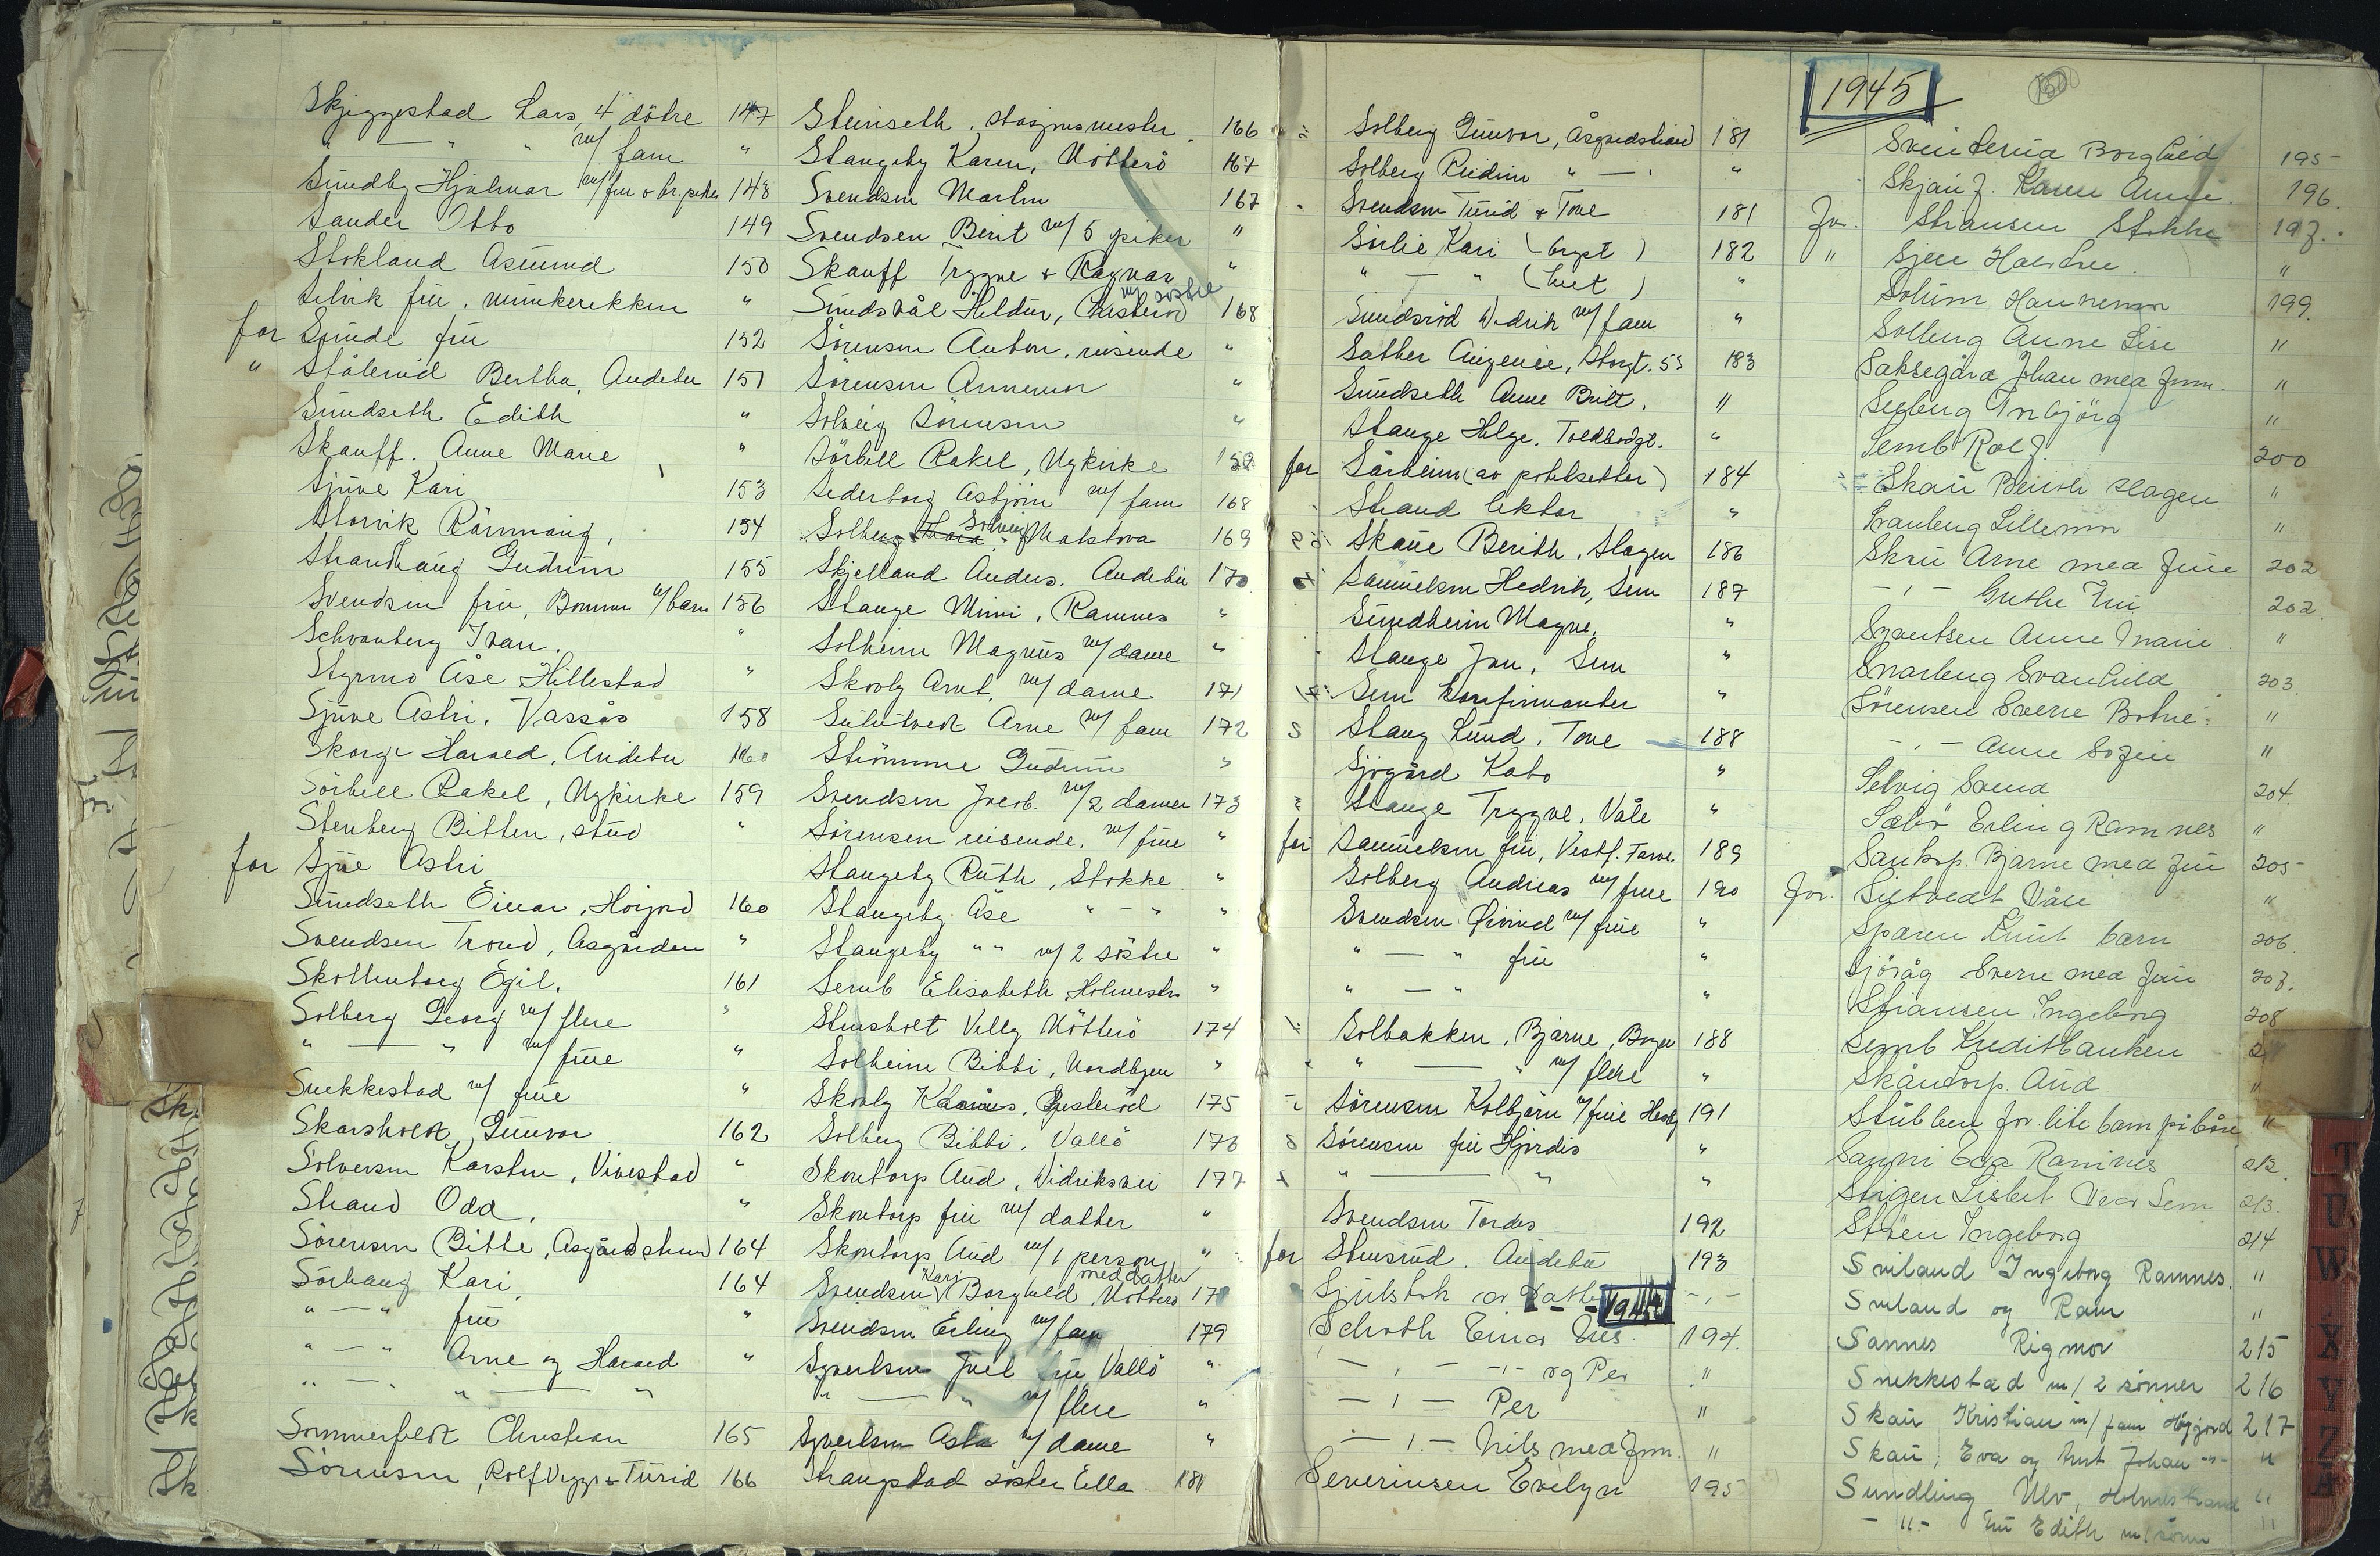 Skjeggestad Lars, 4 døtre 147
" — " " m/ fam "
Sundby Hjalmar m/ fru o br.piker 148
Sander Otto 149
Stokland Asmund 150
Selvik fru. "
for Sunde fru 152
" Stålerød Bertha, Andebu 151
Sundseth Edith "
Skauff. Anne Marie "
Sjuve Kari 153
Storvik 154
Strandhaug Gudrun 155
Svendsen fru, Bommen m/ barn 156
Schvanberg Ivan. "
Styrmo Åse Hillestad "
Sjuve Astri. Vassås 158
Skorge Harald, Andebu 160
Sörbell Rakel, Nykirke 159
Stenberg Bitten, stud "
for Sjue Astri
Sundseth Einar, Höijord 160
Svendsen Trond, Åsgården "
Skollenborg Egil. 161
Solberg Georg m/ flere "
" — " m/ frue "
Snekkestad m/ frue "
Skarsholt Gunvor 162
Solversen Karsten, Vivestad "
Strand Odd, "
Sörensen Bitte, Åsgårdstrand 164
Sörhaug Kari 164
" — " fru "
" — " Arne og Harald "
" — " " — "
Sommerfeldt Christian 165
Sörensen, Rolf Viggo & Turid 166
Steinseth, stasjonsmester 166
Stangeby Karen, Nötterö 167
Svendsen Martin 167
Svendsen Berit m/ 5 piker "
Skauff Trygve & Ragnar "
m/ søstre
Sundsvål Heldur, 168
Sörensen Anton, reisende "
Sörensen Annemor "
Solveig Sörensen "
Sörbell Rakel, Nykirke 158
Sederborg Asbjörn m/ fam 168
Solberg Solveig Matstova 169
Skjelland Anders. Andebu 170
Stange Mimi, Ramnes "
Solheim Magnus m/ dame "
Skovly Arnt, m/ dame 171
Sulutvedt Arne m/ fam 172
Strömme Gudrun "
Svendsen Jacob. m/ 2 damer 173
Sörensen reisende, m/ frue "
Stangeby Ruth, Stokke "
Stangeby Åse " — " "
Stangeby " " m/ 2 söstre "
Semb Elisabeth Holmestr "
Stensholt Velly Nötterö 174
Solheim Bibbi, Nordbyen "
Skovly 175
Solberg Bibbi, Vallö 176
Skontorp Aud, Widriksvei 177
Skontorp fru m/ datter "
Skontorp Aud m/ 1 person "
Svendsen Kari Borghild, Nötterö med datter 178
Svendsen Erling m/ fam 179
Syvertsen Juel fru Vallö "
" — " m/ flere "
Syvertsen Asta m/ dame "
Strangstad söster Ella 180
Solberg Gunvor, Åsgårdstrand 181
Solberg Reidun " — " "
Svendsen Turid & Tove 181
Sörlie Kari (brypt) 182
" — " (hvit) "
Sundsröd Widrik m/ fam "
Sather Augenie, Storgt. 55 183
Sundseth Anne Britt. "
Stange Helge. Toldbodgt. "
for Särheim (av potetsetter) 184
Strand lektor "
Skaue Berith, Slagen 186
Samuelsen Hedvik, Sem 187
Sundheim Magne, "
Stange Jan, Sem "
Sem Konfirmanter "
Stang Lund, Tove 188
Sjögård Kato "
Stange Trygve, Våle "
for Samuelsen fru, Vestf. Tarve. 189
Solberg Andreas m/ frue 190
Svendsen Øivind m/ frue "
" — " fru "
" — " "
Solbakken, Bjarne, Borger 188
" — " m/ flere "
Sörensen Kolbjørn m/ frue Hest 191
Sörensen fru Hjördis "
" — " "
Svendsen Tordis 192
for Stensrud. Andebu 193
1945
Schroth Einar 194.
— , — -"- og Per "
— , — Per "
— , — Nils med fam. "
Severinsen Evelyn 195
1945
Borghild 195
Skjau f. Karen Anne. 196.
for. Stiansen Stokke 197.
" "
Solum Hannemor 199.
Solberg Anne Lise "
Saksegård Johan med fam. "
Seeberg Inbjörg "
Semb Rolf 200
Skau Berith Slagen "
Svanberg Lillemor "
Skau Arne med frue 202
— , — Grethe fru 202
Syvertsen Anne Marie "
Snarberg Svanhild 203.
Sörensen Sverre Botne. "
— , — Anne Sofie "
Selvig Svend 204.
Sæbö Erling Ramnes "
Sankop. Bjarne med fru 205
for. Sletvedt Våle "
Sparen Knut barn 206.
Sjöråg Sverre med fru 207.
Stiansen Ingeborg 208
Semb Kreditbanken
Skåntorp. Aud "
Stubben for lite barn på båre "
Sanni Eva Ramnes 212.
Stigen Lisbet Vear Sem 213.
Stöen Ingeborg 214
Smiland Ingeborg Ramnes. "
Smiland og Ram "
Sannes Rigmor 215
Snekkestad m/ 2 sönner 216
Skau Kristian m/ fam Höyjord 217
Skau, Eva og Knut Johan -"- "
Sundling Ulv, Holmestrand "
- " - fru Edith m/ sönn "
T
U
W
X
Y
Z